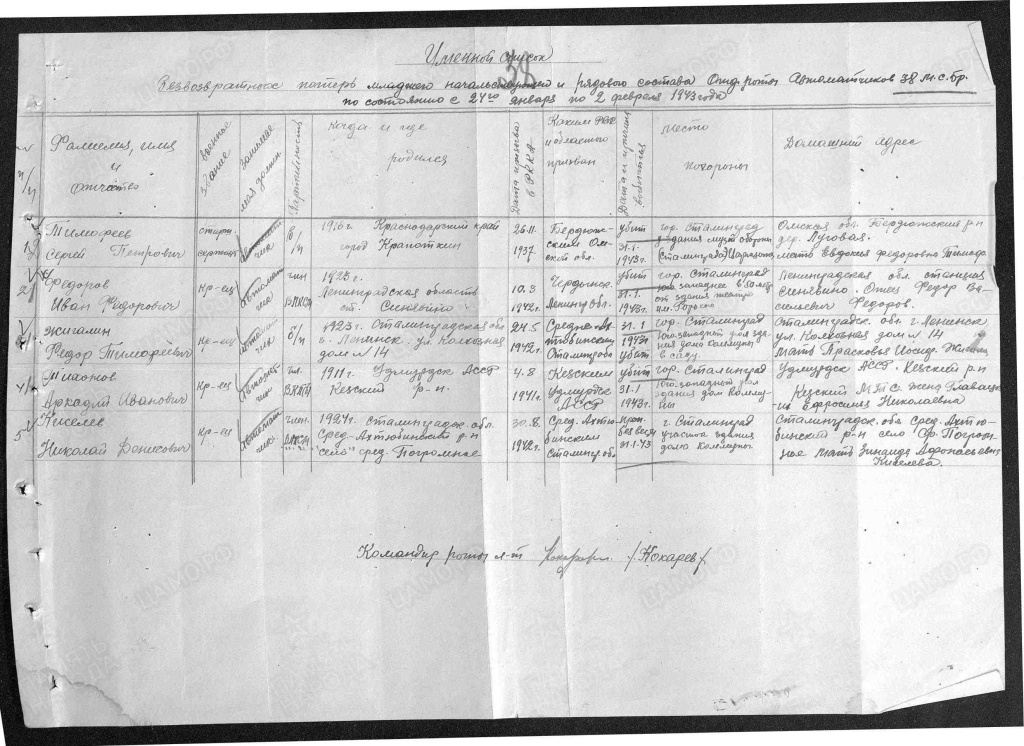 Именной список
38
Безвозвратных потерь младшего начальствующего и рядового состава Отд. роты Автоматчиков 38 м.с.бр.
по состоянию с 24го января по 2 февраля 1943 года
№ п/п
Фамилия, имя и отчество
Военное звание
Занимаемая должн.
Партийность
Когда и где родился
Дата призыва в РККА
Каким РВК и области призван
Дата и причина выбытия
Место похорон
Домашний адрес
1
Тимофеев
Сергей Петрович
старш. сержант
б/п
1916г. Краснодарский край
город Кропоткин
26.11.
1937.
Бердюжским Омской обл.
убит
31.1.
1943г.
гор. Сталинград
Омская обл. Бердюжский р-н
дер. Луговая.
мать Евдокия Федоровна
2
Федоров
Иван Федорович
кр-ец
автоматчик
член ВЛКСМ
1923г.
Ленинградская область
ст. Синявино
10.3
1942г.
Ленингр. обл.
убит
31.1.
1943г.
гор. Сталинград
от здания театра
им. Горького
Ленинградская обл. станция
Синявино. Отец Федор Васильевич Федоров.
3
Жигалин
Федор Тимофеевич
кр-ец
автоматчик
б/п
1923г. Сталинградская обл
г. Ленинск. ул. Колхозная
дом № 14
24.5
1942г.
Средне-Ахтюбинским
Сталингр. обл
31.1
1943г
убит
гор. Сталинград
Юго-западней здания дома коммуны
в саду
Сталинградск. обл г. Ленинск
ул. Колхозная дом № 14
мать Прасковья
4
Аркадий Иванович
кр-ец
автоматчик
чл. ВКП(б)
1911г. Удмуртск АССР
Кезский р-н.
4.8
1941г.
Кезским
Удмуртск
АССР
убит
31.1.
1943г.
гор. Сталинград
Юго-западный
здания дом Коммуны
Удмуртск АССР. Кезский р-н
Кезский МТС жена
Ефросиния Николаевна
5
Киселев
Николай Денисович
кр-ец
автоматчик
член ВЛКСМ
1924г. Сталинградск обл.
Сред-Ахтюбинский р-н
село Сред. Погромное
30.8.
1942г.
Сред. Ахтюбинским
Сталингр обл
проп без вести
31.1.43
г. Сталинград
участок здания
дома Коммуны
Сталинградск. обл Сред. Ахтюбинский р-н село Ср. Погромное мать Зинаида Афонасьевна
Киселева.
Командир роты л-т /Кокарев/
ЦАМО РФ